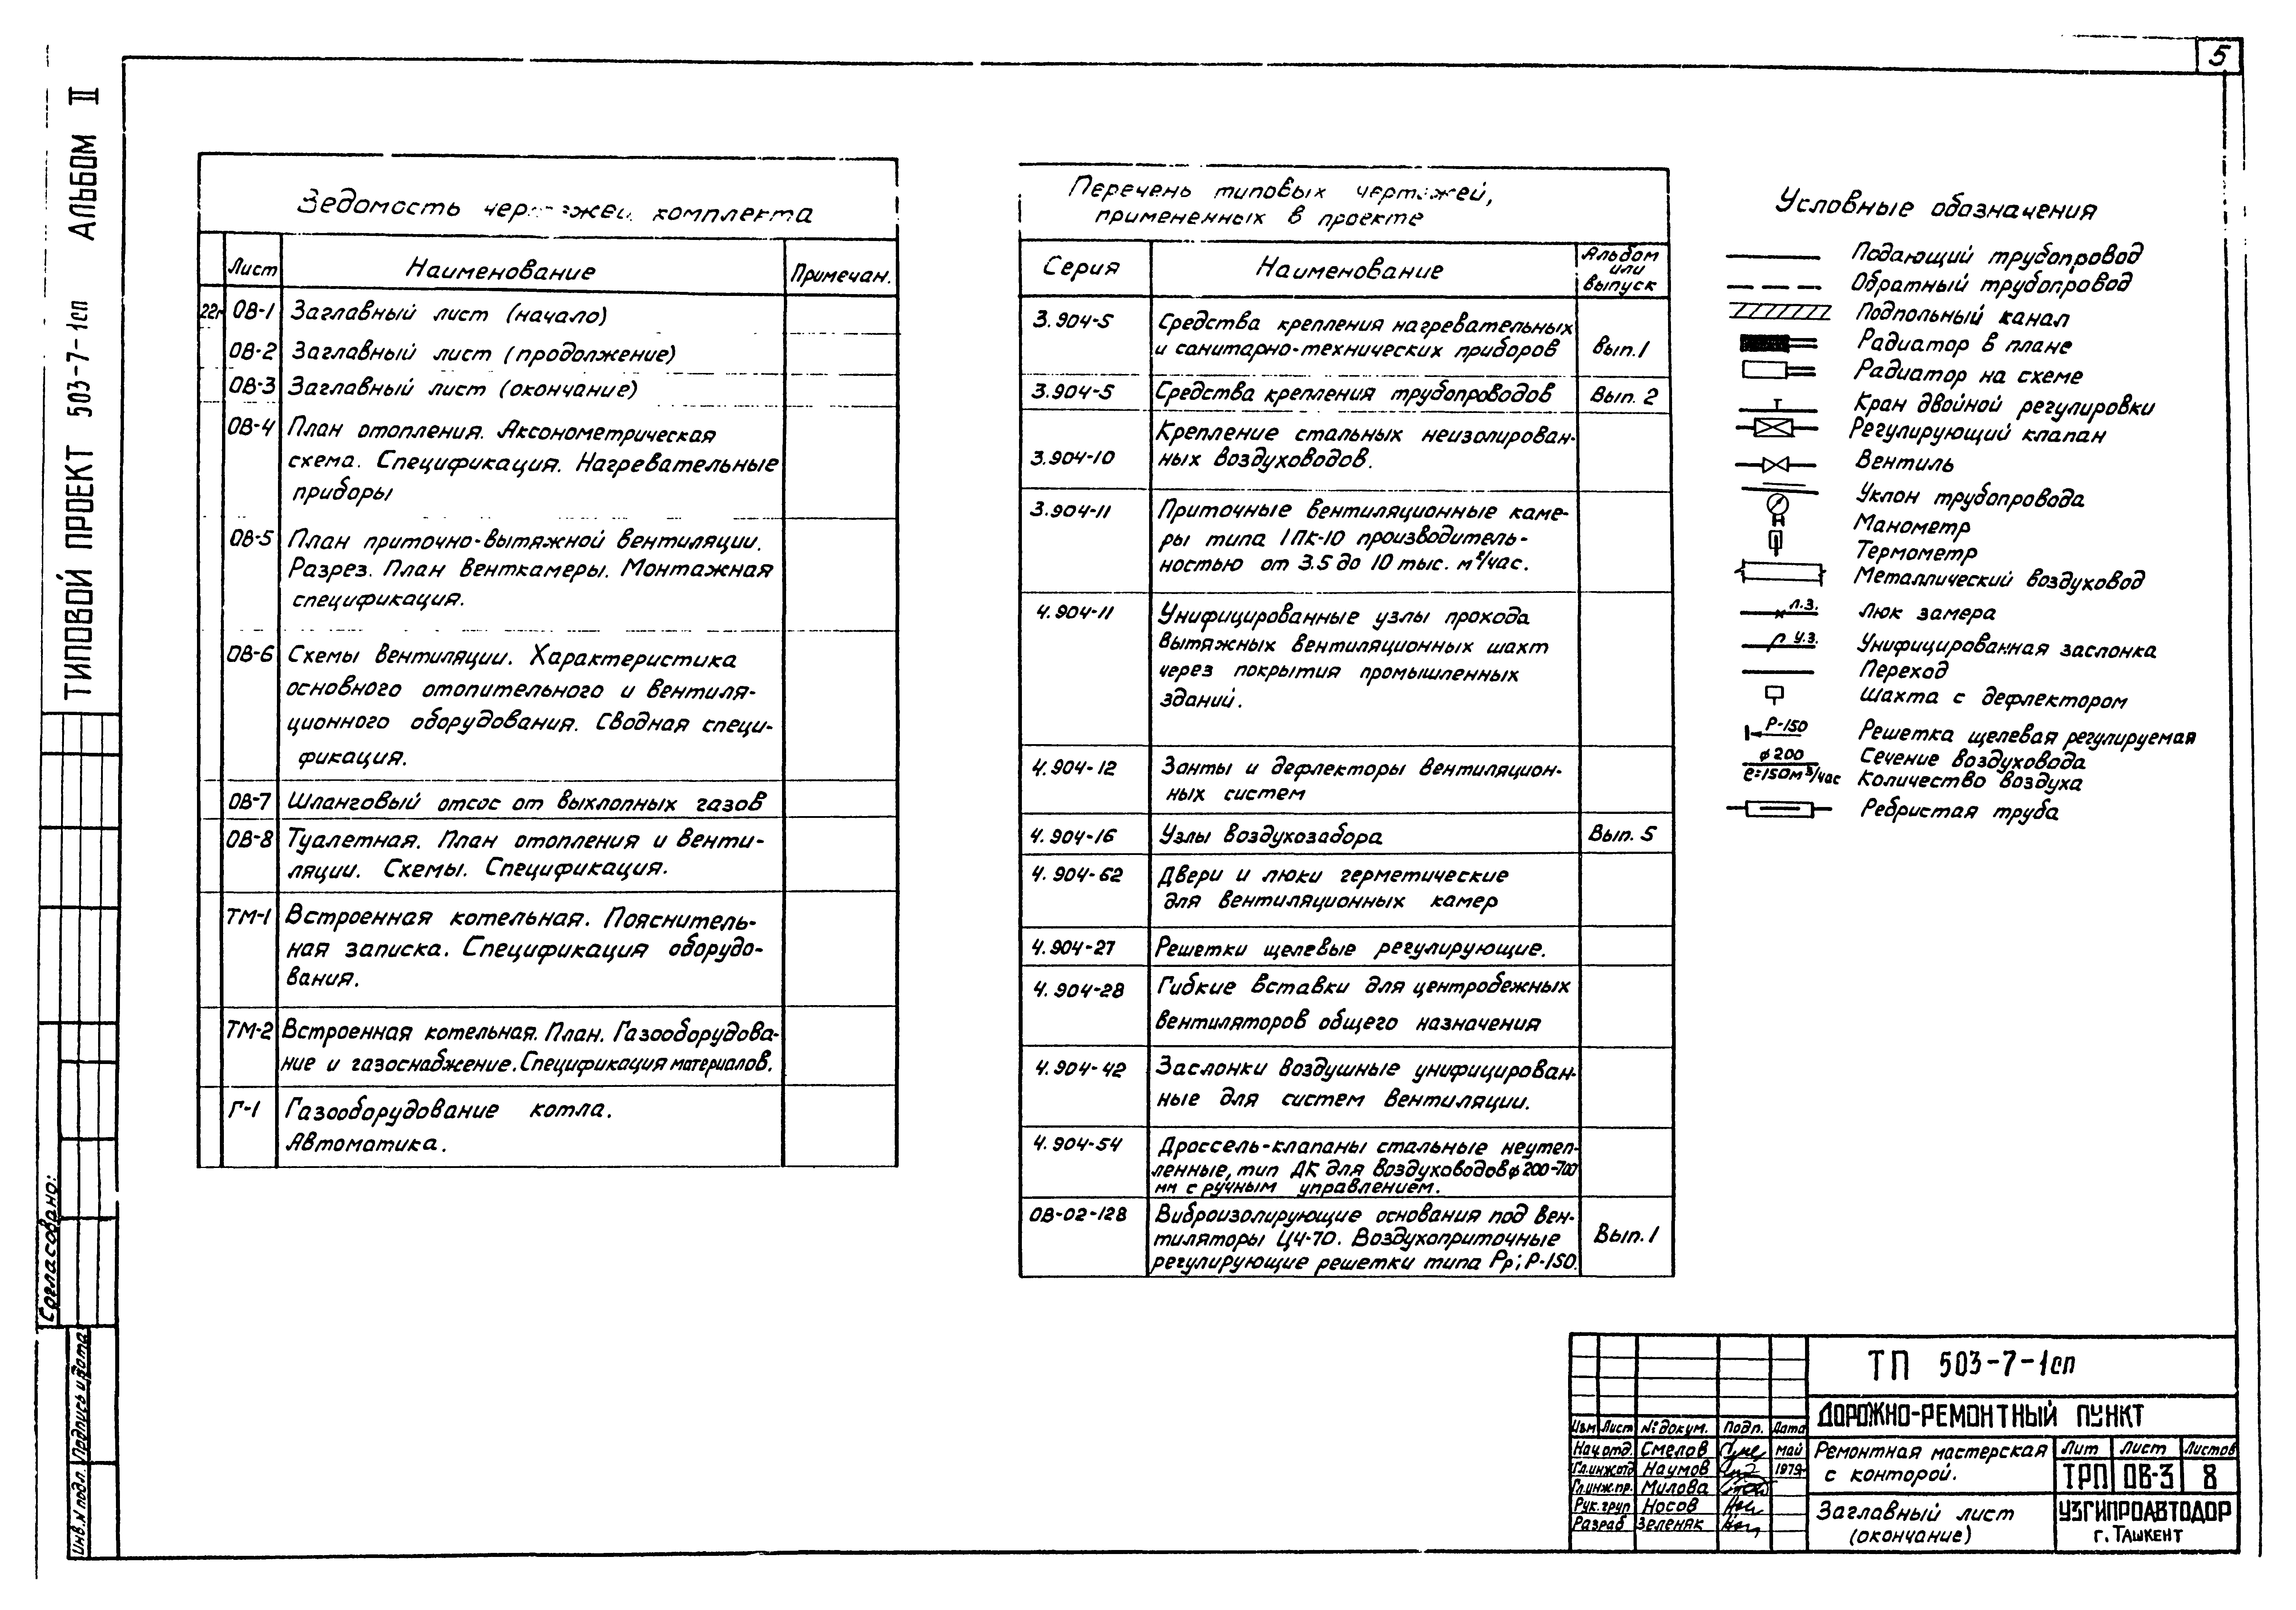 5
ТИПОВОЙ ПРОЕКТ 503-7-1сп АЛЬБОМ II
Согласовано:
Инв.N подл. Подпись и дата
Ведомость чертежей комплекта
Лист Наименование Примечан.
ОВ-1 Заглавный лист (начало)
ОВ-2 Заглавный лист (продолжение)
ОВ-3 Заглавный лист (окончание)
ОВ-4 План отопления. Аксонометрическая
схема. Спецификация. Нагревательные
приборы
ОВ-5 План приточно-вытяжной вентиляции.
Разрез. План венткамеры. Монтажная
спецификация.
ОВ-6 Схемы вентиляции. Характеристика
основного отопительного и вентиля-
ционного оборудования. Сводная специ-
фикация.
ОВ-7 Шланговый отсос от выхлопных газов
ОВ-8 Туалетная. План отопления и венти-
ляции. Схемы. Спецификация.
ТМ-1 Встроенная котельная. Пояснитель-
ная записка. Спецификация оборудо-
вания.
ТМ-2 Встроенная котельная. План. Газооборудова-
ние и газоснабжение. Спецификация материалов.
Г-1 Газооборудование котла.
Автоматика.
Перечень типовых чертежей,
примененных в проекте
Серия Наименование Альбом
или
выпуск
3.904-5 Средства крепления нагревательных
и санитарно-технических приборов Вып.1
3.904-5 Средства крепления трубопроводов Вып. 2
Крепление стальных неизолирован-
3.904-10 ных воздуховодов.
3.904-11 Приточные вентиляционные каме-
ры типа 1ПК-10 производитель-
ностью от 3.5 до 10 тыс. м³/час.
4.904-11 Унифицированные узлы прохода
вытяжных вентиляционных шахт
через покрытия промышленных
зданий.
4.904-12 Зонты и дефлекторы вентиляцион-
ных систем
4.904-16 Узлы воздухозабора Вып. 5
4.904-62 Двери и люки герметические
для вентиляционных камер
4.904-27 Решетки щелевые регулирующие.
4.904-28 Гибкие вставки для центробежных
вентиляторов общего назначения
4.904-42 Заслонки воздушные унифицирован-
ные для систем вентиляции.
4.904-54 Дроссель-клапаны стальные неутеп-
ленные, тип ДК для воздуховодов ф200-700
мм с ручным управлением.
ОВ-02-128 Виброизолирующие основания под вен-
тиляторы Ц4-70. Воздухоприточные Вып.1
регулирующие решетки типа Рр; Р-150.
Условные обозначения
Подающий трубопровод
Обратный трубопровод
Подпольный канал
Радиатор в плане
Радиатор на схеме
Кран двойной регулировки
Регулирующий клапан
Вентиль
Уклон трубопровода
Манометр
Термометр
Металлический воздуховод
л.з. Люк замера
у.з. Унифицированная заслонка
Переход
Шахта с дефлектором
Р-150 Решетка щелевая регулируемая
ф200 Сечение воздуховода
е=150м³/час Количество воздуха
Ребристая труба
ТП 503-7-1сп
ДОРОЖНО-РЕМОНТНЫЙ ПУНКТ
Изм Лист №докум. Подп. Дата
Нач.отд. Смелов май
Гл.инж.отд Наумов 1979
Гл.инж.пр. Милова
Рук.груп Носов
Разраб Зеленяк
Ремонтная мастерская
с конторой.
Лит Лист Листов
ТРП ОВ-3 8
Заглавный лист
(окончание)
УЗГИПРОАВТОДОР
г. Ташкент